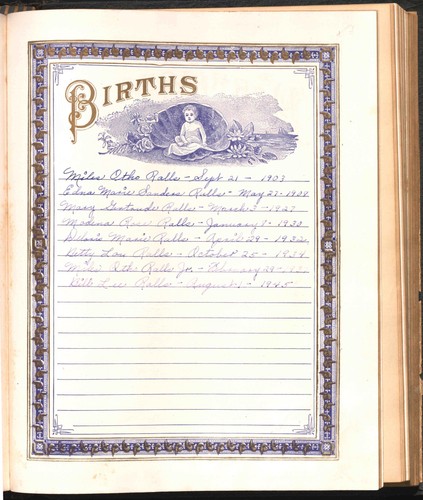 BIRTHS
Miles Otho Ralls - Sept 21 - 1903
Edna Marie Sanders Ralls - May 23 - 1908
Mary Gertrude Ralls - March 3 - 1927
Modena Rose Ralls - January 8 - 1930
Deloris Marie Ralls - April 29 - 1932
Betty Lou Ralls - October 25 - 1934
Miles Ralls Jr. - February 29 -
Lee Ralls - August - 1945